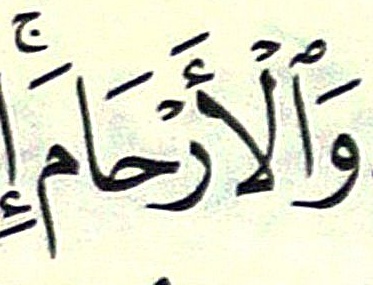 وَٱلۡأَرۡحَامَۚ إِ